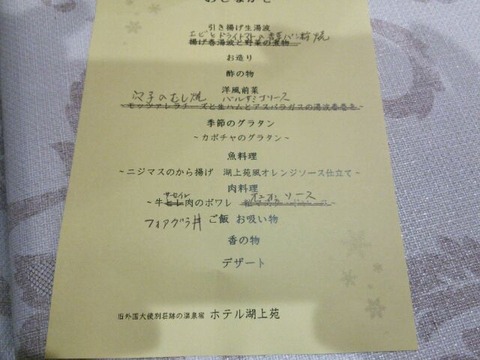 おしながき
引き揚げ生湯波
エビとドライトマトの香草パン粉焼
揚げ巻湯波と野菜の煮物
お造り
酢の物
洋風前菜
穴子のむし焼 バルサミコソース
モッツアレラチーズと生ハムとアスパラガスの湯波春巻き
季節のグラタン
~カボチャのグラタン~
魚料理
~ニジマスのから揚げ 湖上苑風オレンジソース仕立て~
肉料理
サーロイン オニオンソース
~牛ヒレ肉のポワレ
フォアグラ丼 ご飯 お吸い物
香の物
デザート
旧外国大使別荘跡の温泉宿 ホテル湖上苑